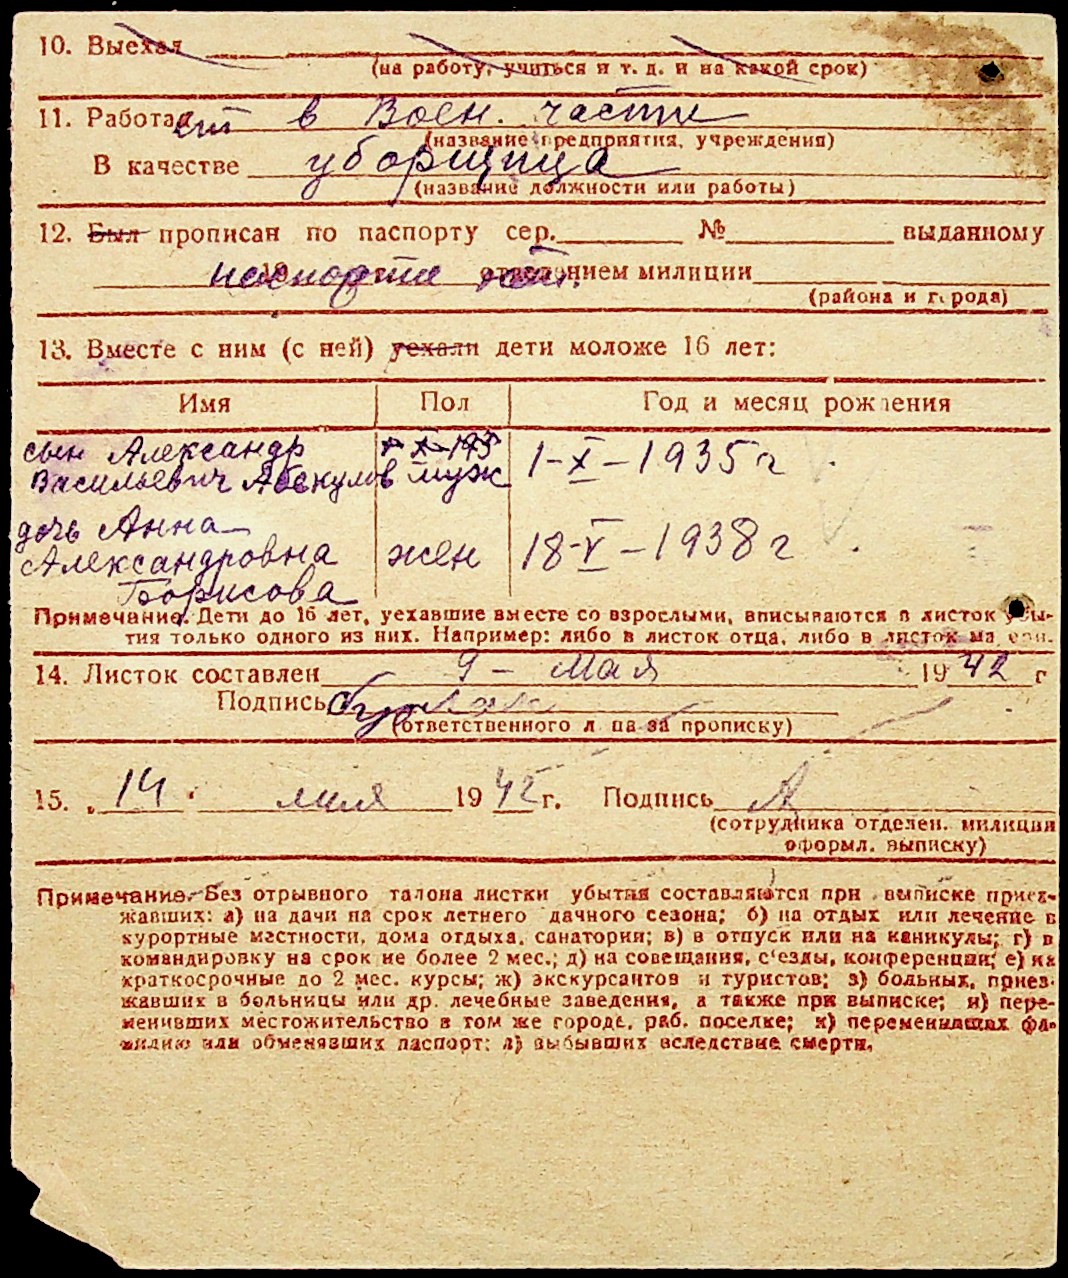 10. Выехал
(на работу, учиться и т. д. и на какой срок)
11. Работает в Воен. части
(название предприятия, учреждения)
В качестве уборщица
(название должности или работы)
12. Был прописан по паспорту сер. № выданному
паспорта нет. 19 отделением милиции
(района и города)
13. Вместе с ним (с ней) уехали дети моложе 16 лет:
Имя Пол Год и месяц рождения
сын Александр + X-193
Васильевич Абакумов муж 1-X-1935г
дочь Анна
Александровна жен 18-V-1938г
Борисова
Примечание. Дети до 16 лет, уехавшие вместе со взрослыми, вписываются в листок убы-
тия только одного из них. Например: либо в листок отца, либо в листок матери.
14. Листок составлен 9 - Мая 1942 г
Подпись
(ответственного лица за прописку)
15. „14" мая 1942 г. Подпись
(сотрудника отделен. милиции
оформл. выписку)
Примечание. Без отрывного талона листки убытия составляются при выписке приез-
жавших: а) на дачи на срок летнего дачного сезона; б) на отдых или лечение в
курортные местности, дома отдыха, санатории; в) в отпуск или на каникулы; г) в
командировку на срок не более 2 мес.; д) на совещания, с'езды, конференции; е) на
краткосрочные до 2 мес. курсы; ж) экскурсантов и туристов; з) больных, приез-
жавших в больницы или др. лечебные заведения, а также при выписке; и) пере-
менивших местожительство в том же городе, раб. поселке; к) переменивших фа-
милию или обменявших паспорт; л) выбывших вследствие смерти.